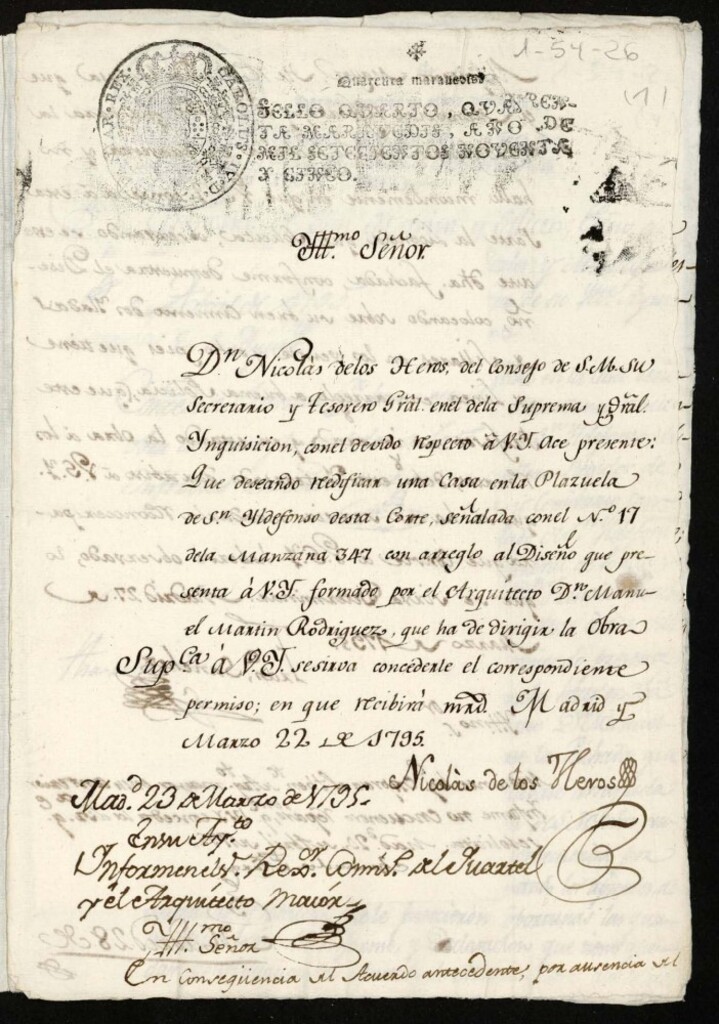 1-54-26
(1)
Quarenta maravedis
SELLO QUARTO, QVAREN-
TA MARAVEDIS, AÑO DE
MIL SETECIENTOS NOVENTA
Y CINCO.
CAROLUS IV D G
AR REX
Yllmo. Señor.
Dn. Nicolás delos Heros, del Consejo de S.M. Su
Secretario y Tesorero Gräl. enel dela Suprema y Gräl.
Inquisicion, conel devido respecto à V.Y. Ace presente:
Que deseando redificar una Casa enla Plazuela
de Sn. Yldefonso desta Corte, señalada conel N.º 17
dela Manzana 347 con arreglo al Diseño que pre-
senta à V.Y. formado por el Arquitecto Dn. Manu-
el Martin Rodriguez, que ha de dirigir la Obra
Supca. à V.Y. sesirva concederle el correspondiente
permiso; en que recibirá mrd. Madrid y
Marzo 22 de 1795.
Nicolàs de los Heros
Madd. 23 de Marzo de 1795.
Ensu Ayto.
Ynformen el Sr. Rexor. Comiso. del Quartel
y el Arquitecto Maior.
Yllmo. Señor
En conseqüencia del Acuerdo antecedente, por ausencia del